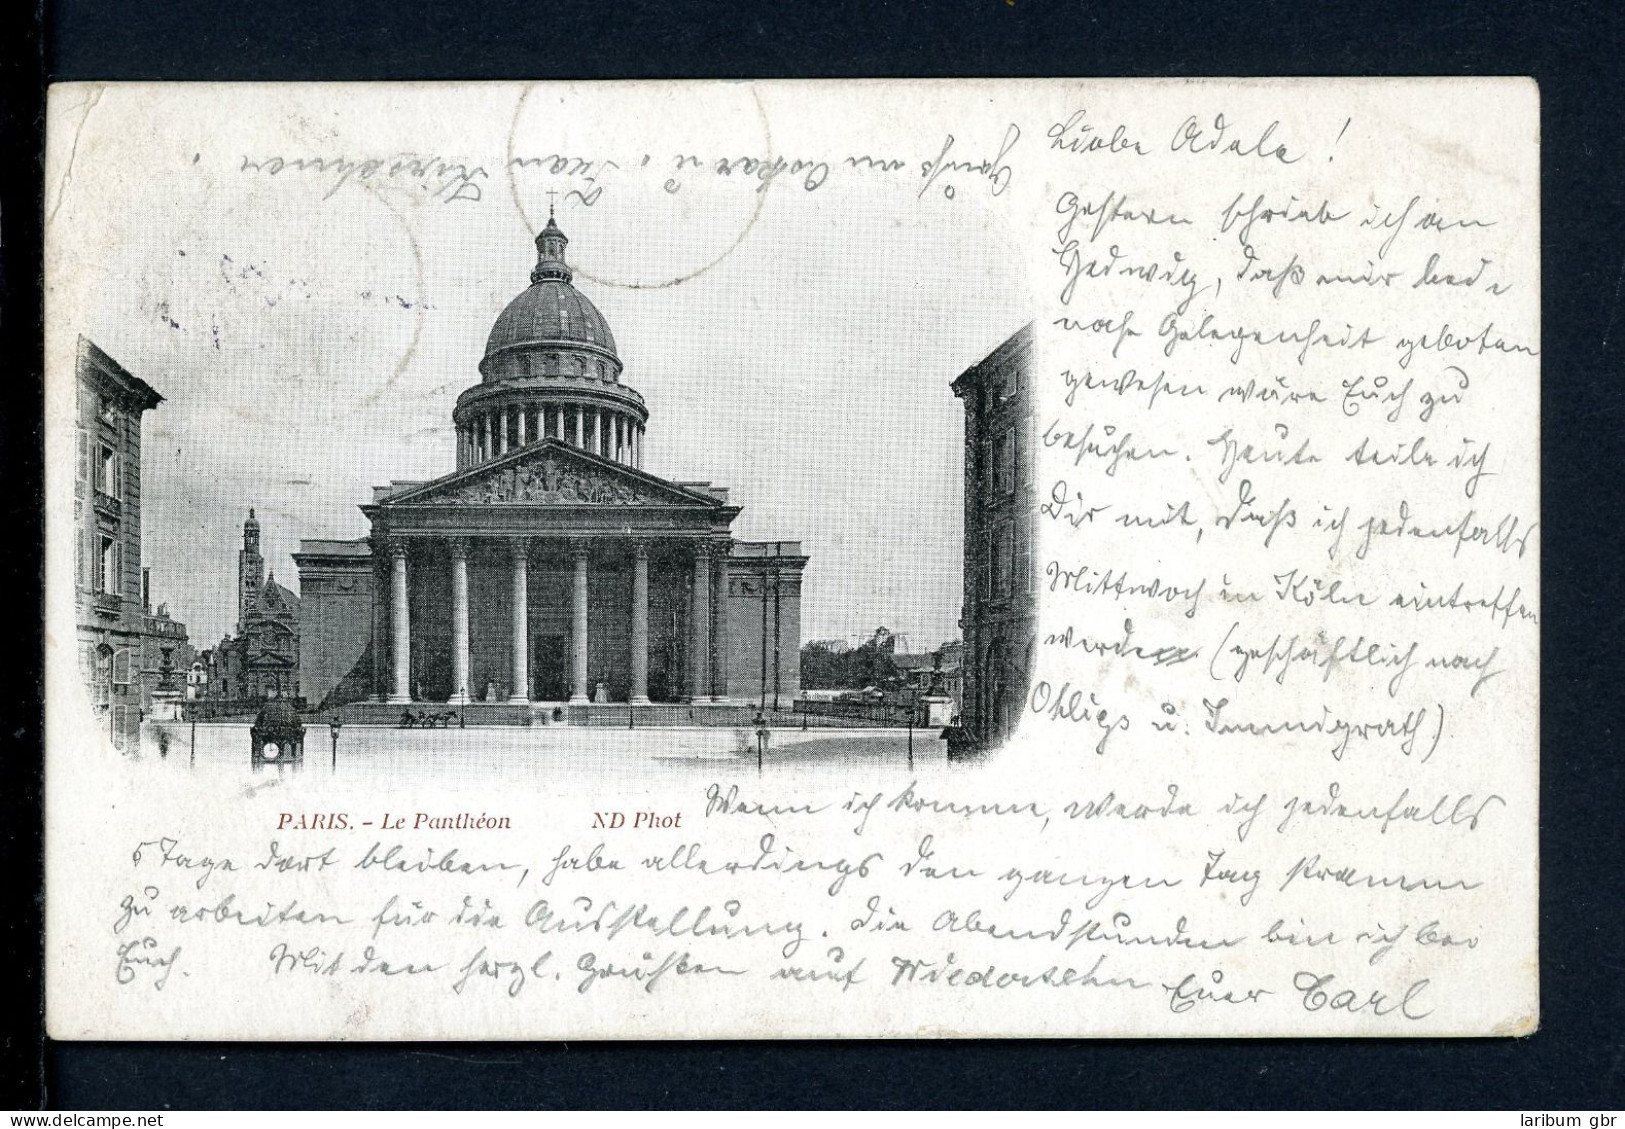 Liebe Adele!
Gestern schrieb ich an
Hedwig, daß mir bei-
nahe Gelegenheit geboten
gewesen wäre Euch zu
besuchen. Heute teile ich
Dir mit, daß ich jedenfalls
Mittwoch in Köln eintreffen
werde (geschäftlich nach
Ohligs u. Immigrath)
Wenn ich komme, werde ich jedenfalls
5 Tage dort bleiben, habe allerdings den ganzen Tag stramm
zu arbeiten für die Ausstellung. Die Abendstunden bin ich bei
Euch. Mit den herzl. Grüßen auf Wiedersehn Euer Carl
Gruß an Oskar u. Frau
PARIS. - Le Panthéon ND Phot
laribum gbr